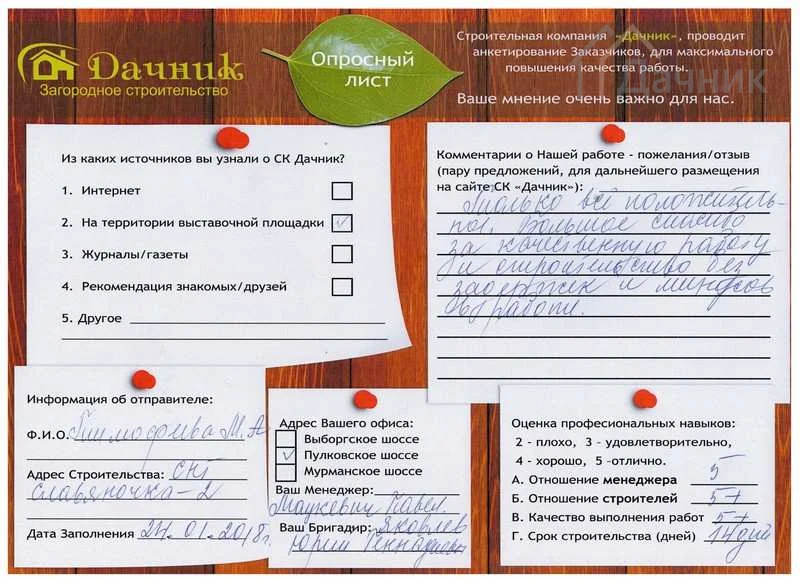 Дачник
Загородное строительство
Опросный
лист
Строительная компания «Дачник», проводит
анкетирование Заказчиков, для максимального
повышения качества работы.
Ваше мнение очень важно для нас.
Дачник
Из каких источников вы узнали о СК Дачник?
1. Интернет
2. На территории выставочной площадки ✓
3. Журналы/газеты
4. Рекомендация знакомых/друзей
5. Другое
Комментарии о Нашей работе - пожелания/отзыв
(пару предложений, для дальнейшего размещения
на сайте СК «Дачник»):
Только всё положитель-
но!, Большое спасибо
за качественную работу
и строительство без
задержек и минусов
в работе.
Информация об отправителе:
Ф.И.О. Тимофеева М.А
Адрес Строительства: СНТ
Славяночка-2
Дата Заполнения 24.01.2018г.
Адрес Вашего офиса:
Выборгское шоссе
✓ Пулковское шоссе
Мурманское шоссе
Ваш Менеджер:
Мацкевич Павел
Ваш Бригадир: Яковлев
Юрий Геннадьевич
Оценка профессиональных навыков:
2 - плохо, 3 - удовлетворительно,
4 - хорошо, 5 -отлично.
А. Отношение менеджера 5
Б. Отношение строителей 5+
В. Качество выполнения работ 5+
Г. Срок строительства (дней) 14 дней